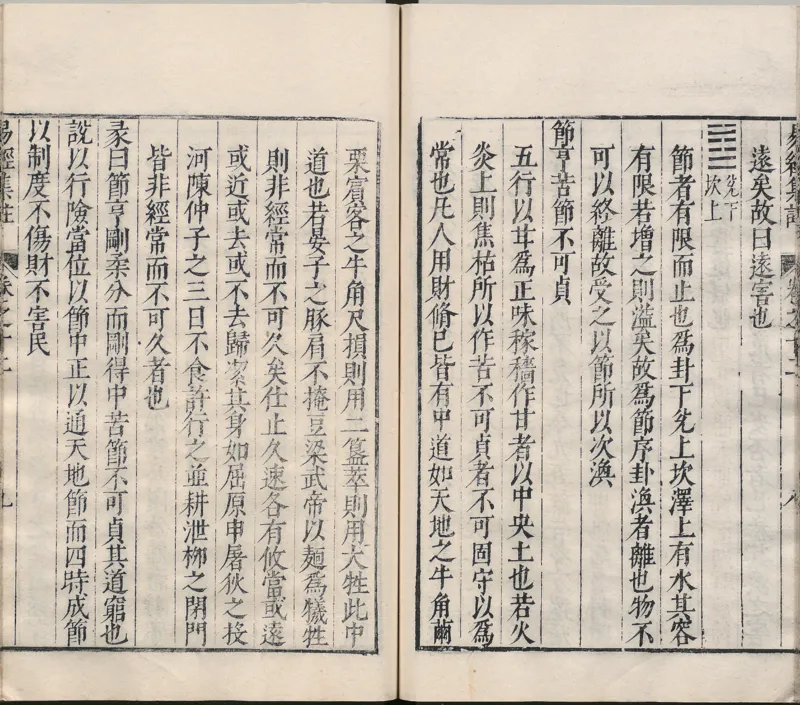 遠矣故曰遠害也
兊下
坎上
節者有限而止也爲卦下兊上坎澤上有水其容
有限若增之則溢矣故爲節序卦渙者離也物不
可以終離故受之以節所以次渙
節亨苦節不可貞
五行以甘爲正味稼穡作甘者以中央土也若火
炎上則焦枯所以作苦不可貞者不可固守以爲
常也凡人用財脩己皆有中道如天地之牛角繭
栗賔客之牛角尺損則用二簋萃則用大牲此中
道也若晏子之豚肩不掩豆梁武帝以麵爲犧牲
則非經常而不可久矣仕止久速各有攸當或遠
或近或去或不去歸潔其身如屈原申屠狄之投
河陳仲子之三日不食許行之並耕泄柳之閉門
皆非經常而不可久者也
彖曰節亨剛柔分而剛得中苦節不可貞其道窮也
說以行險當位以節中正以通天地節而四時成節
以制度不傷財不害民
易經集註
卷之十二
九